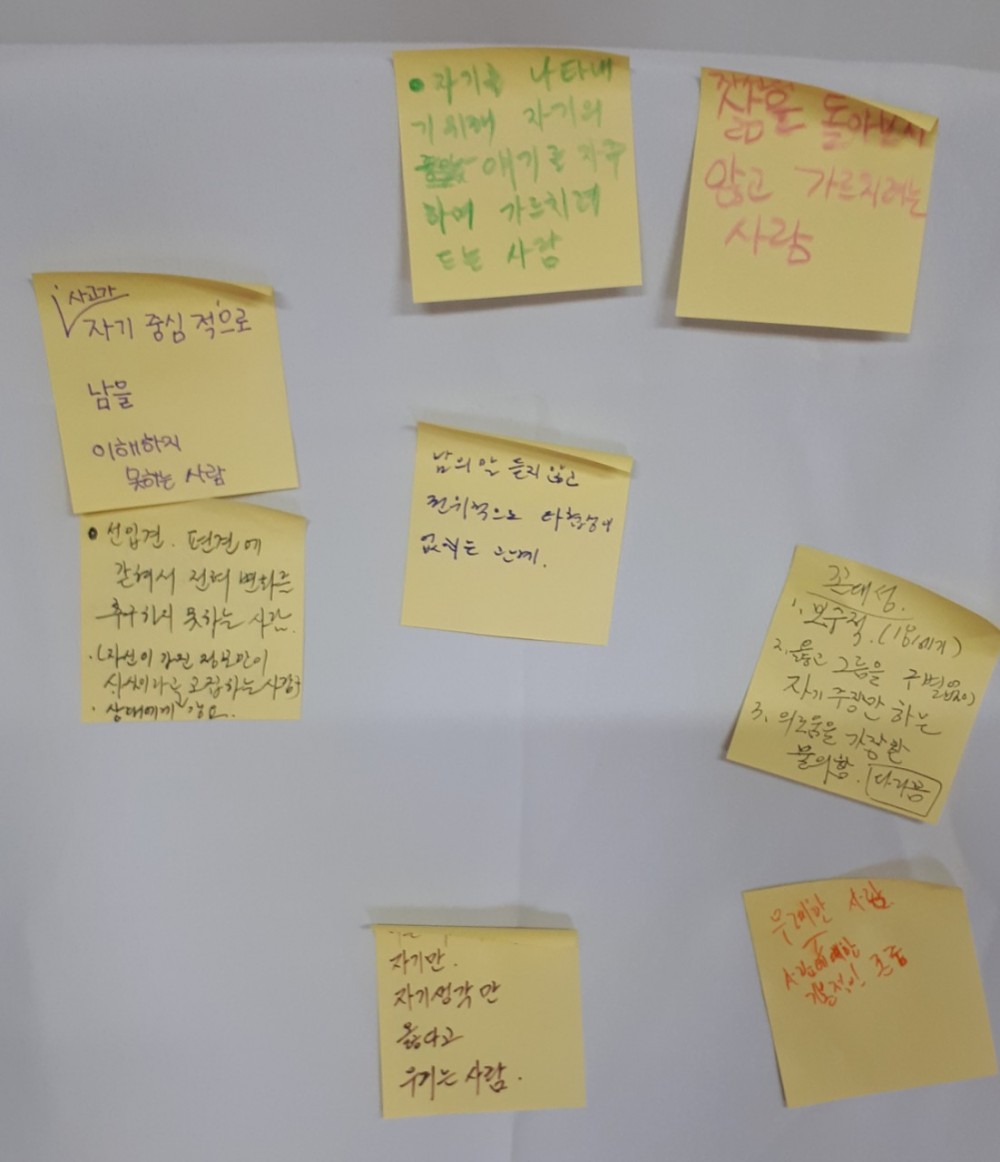 • 자기를 나타내
기 위해 자기의
얘기를 자주
하며 가르치려
드는 사람
삶을 돌아보지
않고 가르치려는
사람
사고가
자기 중심적으로
남을
이해하지
못하는 사람
남의 말 듣지 않고
권위적으로 타협성이
없는 관계.
• 선입견. 편견에
갇혀서 전혀 변화를
추구하지 못하는 사람.
· (자신이 가진 정보만이
고집하는 사람)
· 상대에게 강요.
꼰대성.
1. 보수적.
2. 옳고 그름을 구별없이
자기 주장만 하는
3. 의로움을 가장한
불의함.
자기만.
자기생각만
옳다고
우기는 사람.
무례한 사람.
사람에 대한
기본적인 존중